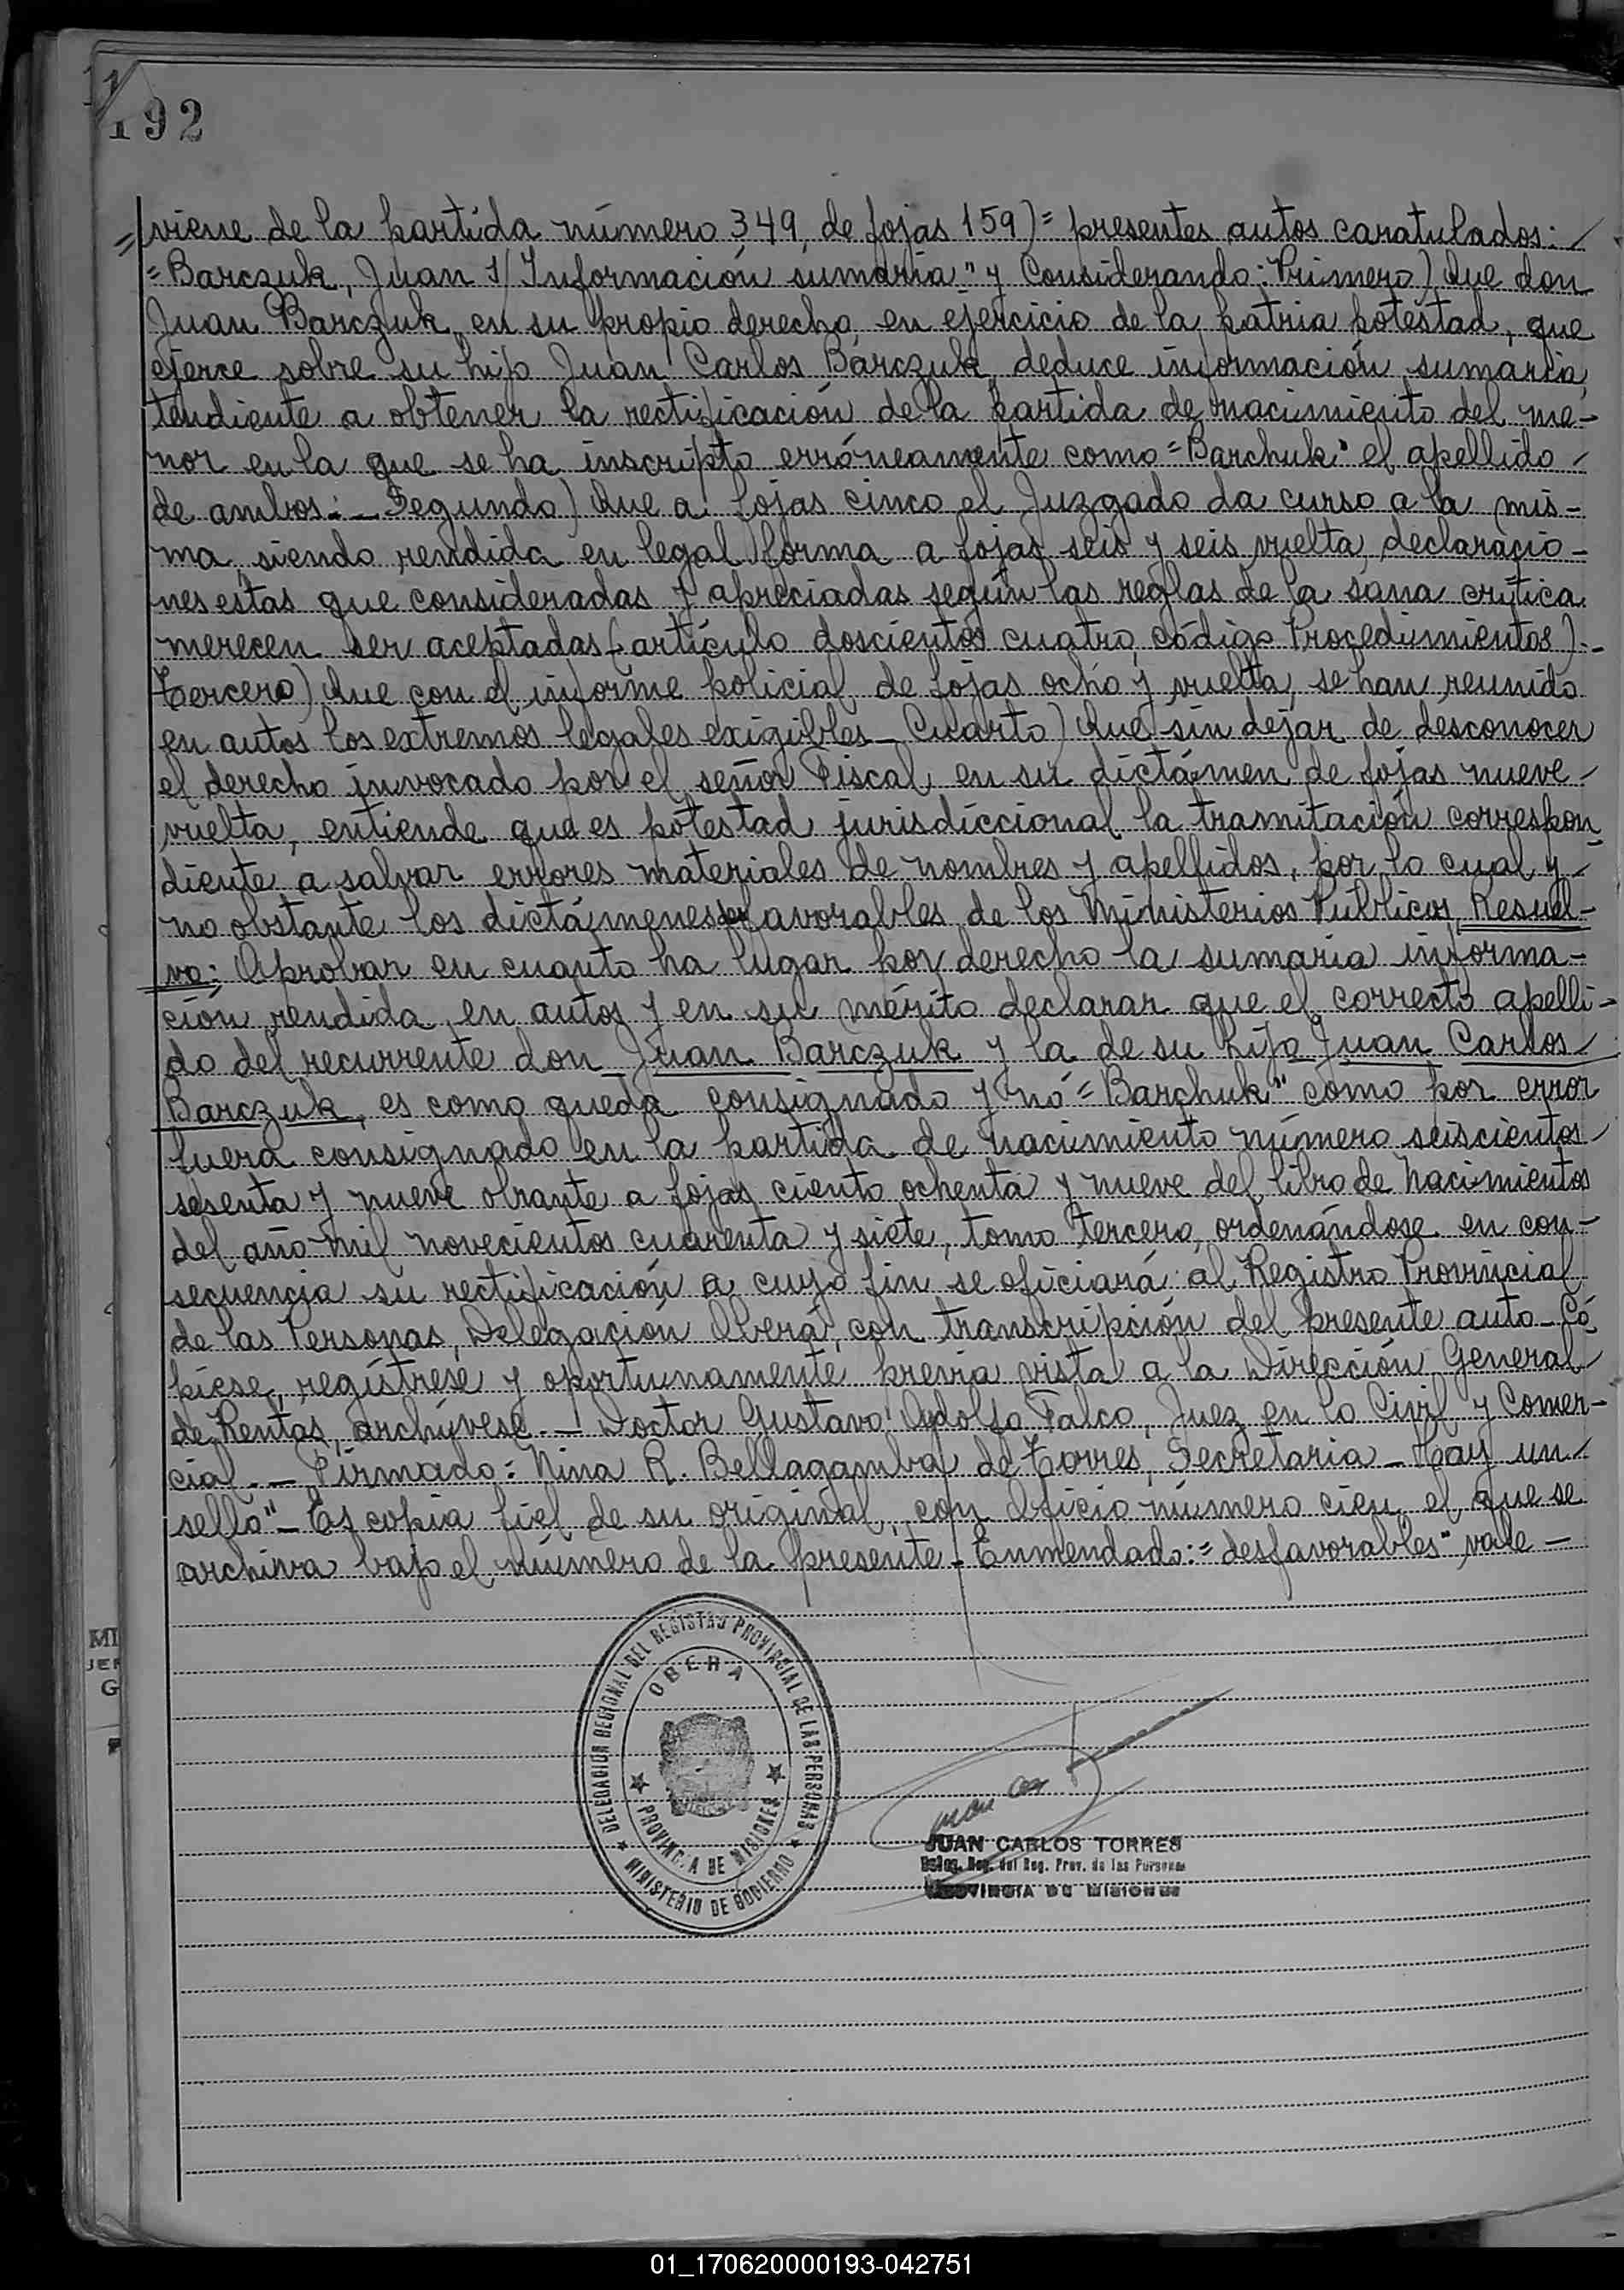 192
(viene de la partida número 349, de fojas 159)= presentes autos caratulados:
="Barczuk, Juan s/ Información sumaria" y Considerando: Primero) Que don
Juan Barczuk, en su propio derecho, en ejercicio de la patria potestad, que
ejerce sobre su hijo Juan Carlos Barczuk, deduce información sumaria
tendiente a obtener la rectificación de la partida de nacimiento del me-
nor en la que se ha inscripto erróneamente como ="Barchuk" el apellido
de ambos:_ Segundo) Que a fojas cinco el Juzgado da curso a la mis-
ma, siendo rendida en legal forma a fojas seis y seis vuelta, declaracio-
nes estas que consideradas y apreciadas según las reglas de la sana crítica
merecen ser aceptadas (artículo doscientos cuatro, código Procedimientos).-
Tercero) Que con el informe policial de fojas ocho y vuelta, se han reunido
en autos los extremos legales exigibles_ Cuarto) Que sin dejar de desconocer
el derecho invocado por el señor Fiscal, en su dictámen de fojas nueve
vuelta, entiende que es potestad jurisdiccional la tramitación correspon-
diente a salvar errores materiales de nombres y apellidos, por lo cual y
no obstante los dictámenes desfavorables de los Ministerios Públicos, Resuel-
vo: Aprobar en cuanto ha lugar por derecho la sumaria informa-
ción rendida en autos y en su mérito declarar que el correcto apelli-
do del recurrente don Juan Barczuk y la de su hijo Juan Carlos
Barczuk, es como queda consignado y nó ="Barchuk" como por error
fuera consignado en la partida de nacimiento número seiscientos
sesenta y nueve obrante a fojas ciento ochenta y nueve del libro de Nacimientos
del año mil novecientos cuarenta y siete, tomo tercero, ordenándose en con-
secuencia su rectificación a cuyo fin se oficiará al Registro Provincial
de las Personas, Delegación Oberá, con transcripción del presente auto_ Có-
piese, regístrese y oportunamente previa vista a la Dirección General
de Rentas, archívese._ Doctor Gustavo Adolfo Falco, Juez en lo Civil y Comer-
cial._ Firmado: Nina R. Bellagamba de Torres, Secretaria_ Hay un
sello"_ Es copia fiel de su original, con Oficio número cien, el que se
archiva bajo el número de la presente_ Enmendado: ="desfavorables" vale_
DELEGACION REGIONAL DEL REGISTRO PROVINCIAL DE LAS PERSONAS
OBERA
PROVINCIA DE MISIONES
MINISTERIO DE GOBIERNO
JUAN CARLOS TORRES
Deleg. Reg. del Reg. Prov. de las Personas
PROVINCIA DE MISIONES
01_170620000193-042751